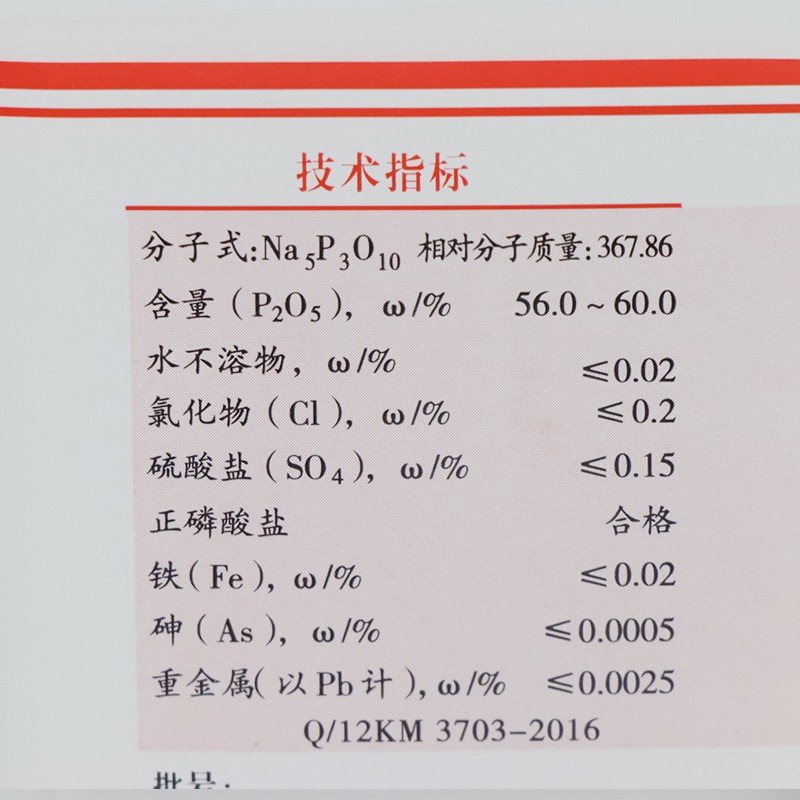 技术指标
分子式:Na₅P₃O₁₀ 相对分子质量:367.86
含量(P₂O₅), ω/% 56.0~60.0
水不溶物, ω/% ≤0.02
氯化物(Cl), ω/% ≤0.2
硫酸盐(SO₄), ω/% ≤0.15
正磷酸盐 合格
铁(Fe), ω/% ≤0.02
砷(As), ω/% ≤0.0005
重金属(以Pb计), ω/% ≤0.0025
Q/12KM 3703-2016
批号: